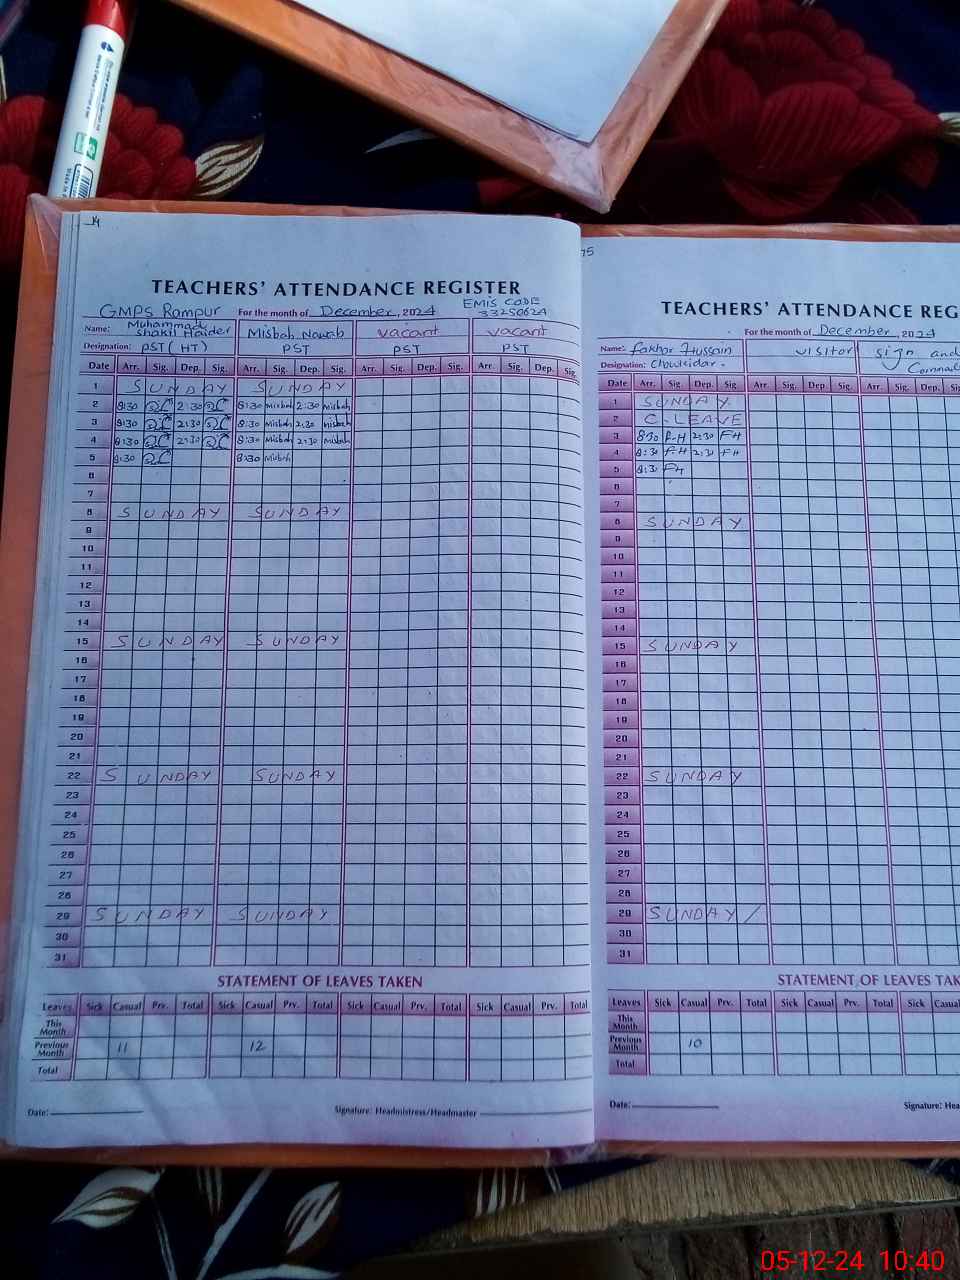 14
TEACHERS' ATTENDANCE REGISTER
GMPS Rampur For the month of December, 2024 EMIS CODE 33250624
Name: Muhammad Shakil Haider Misbah Nawab vacant vacant
Designation: PST (HT) PST PST PST
Date Arr. Sig. Dep. Sig. Arr. Sig. Dep. Sig. Arr. Sig. Dep. Sig. Arr. Sig. Dep. Sig.
1 SUNDAY SUNDAY
2 8:30 2:30 8:30 misbah 2:30 misbah
3 8:30 2:30 8:30 Misbah 2:30 misbah
4 8:30 2:30 8:30 Misbah 2:30 misbah
5 8:30 8:30 Misbah
6
7
8 SUNDAY SUNDAY
9
10
11
12
13
14
15 SUNDAY SUNDAY
16
17
18
19
20
21
22 SUNDAY SUNDAY
23
24
25
26
27
28
29 SUNDAY SUNDAY
30
31
STATEMENT OF LEAVES TAKEN
Leaves Sick Casual Prv. Total Sick Casual Prv. Total Sick Casual Prv. Total Sick Casual Prv. Total
This Month
Previous Month 11 12
Total
Date: Signature: Headmistress/Headmaster
TEACHERS' ATTENDANCE REG
For the month of December, 2024
Name: Fakhar Hussain visitor sign and
Designation: Chowkidar.
Date Arr. Sig. Dep. Sig. Arr. Sig. Dep. Sig. Arr. Sig. Dep.
1 SUNDAY
2 C-LEAVE
3 8:30 F-H 2:30 FH
4 8:30 F-H 2:30 FH
5 8:30 FH
6
7
8 SUNDAY
9
10
11
12
13
14
15 SUNDAY
16
17
18
19
20
21
22 SUNDAY
23
24
25
26
27
28
29 SUNDAY /
30
31
STATEMENT OF LEAVES TAK
Leaves Sick Casual Prv. Total Sick Casual Prv. Total Sick Casual
This Month
Previous Month 10
Total
Date: Signature: Hea
05-12-24 10:40